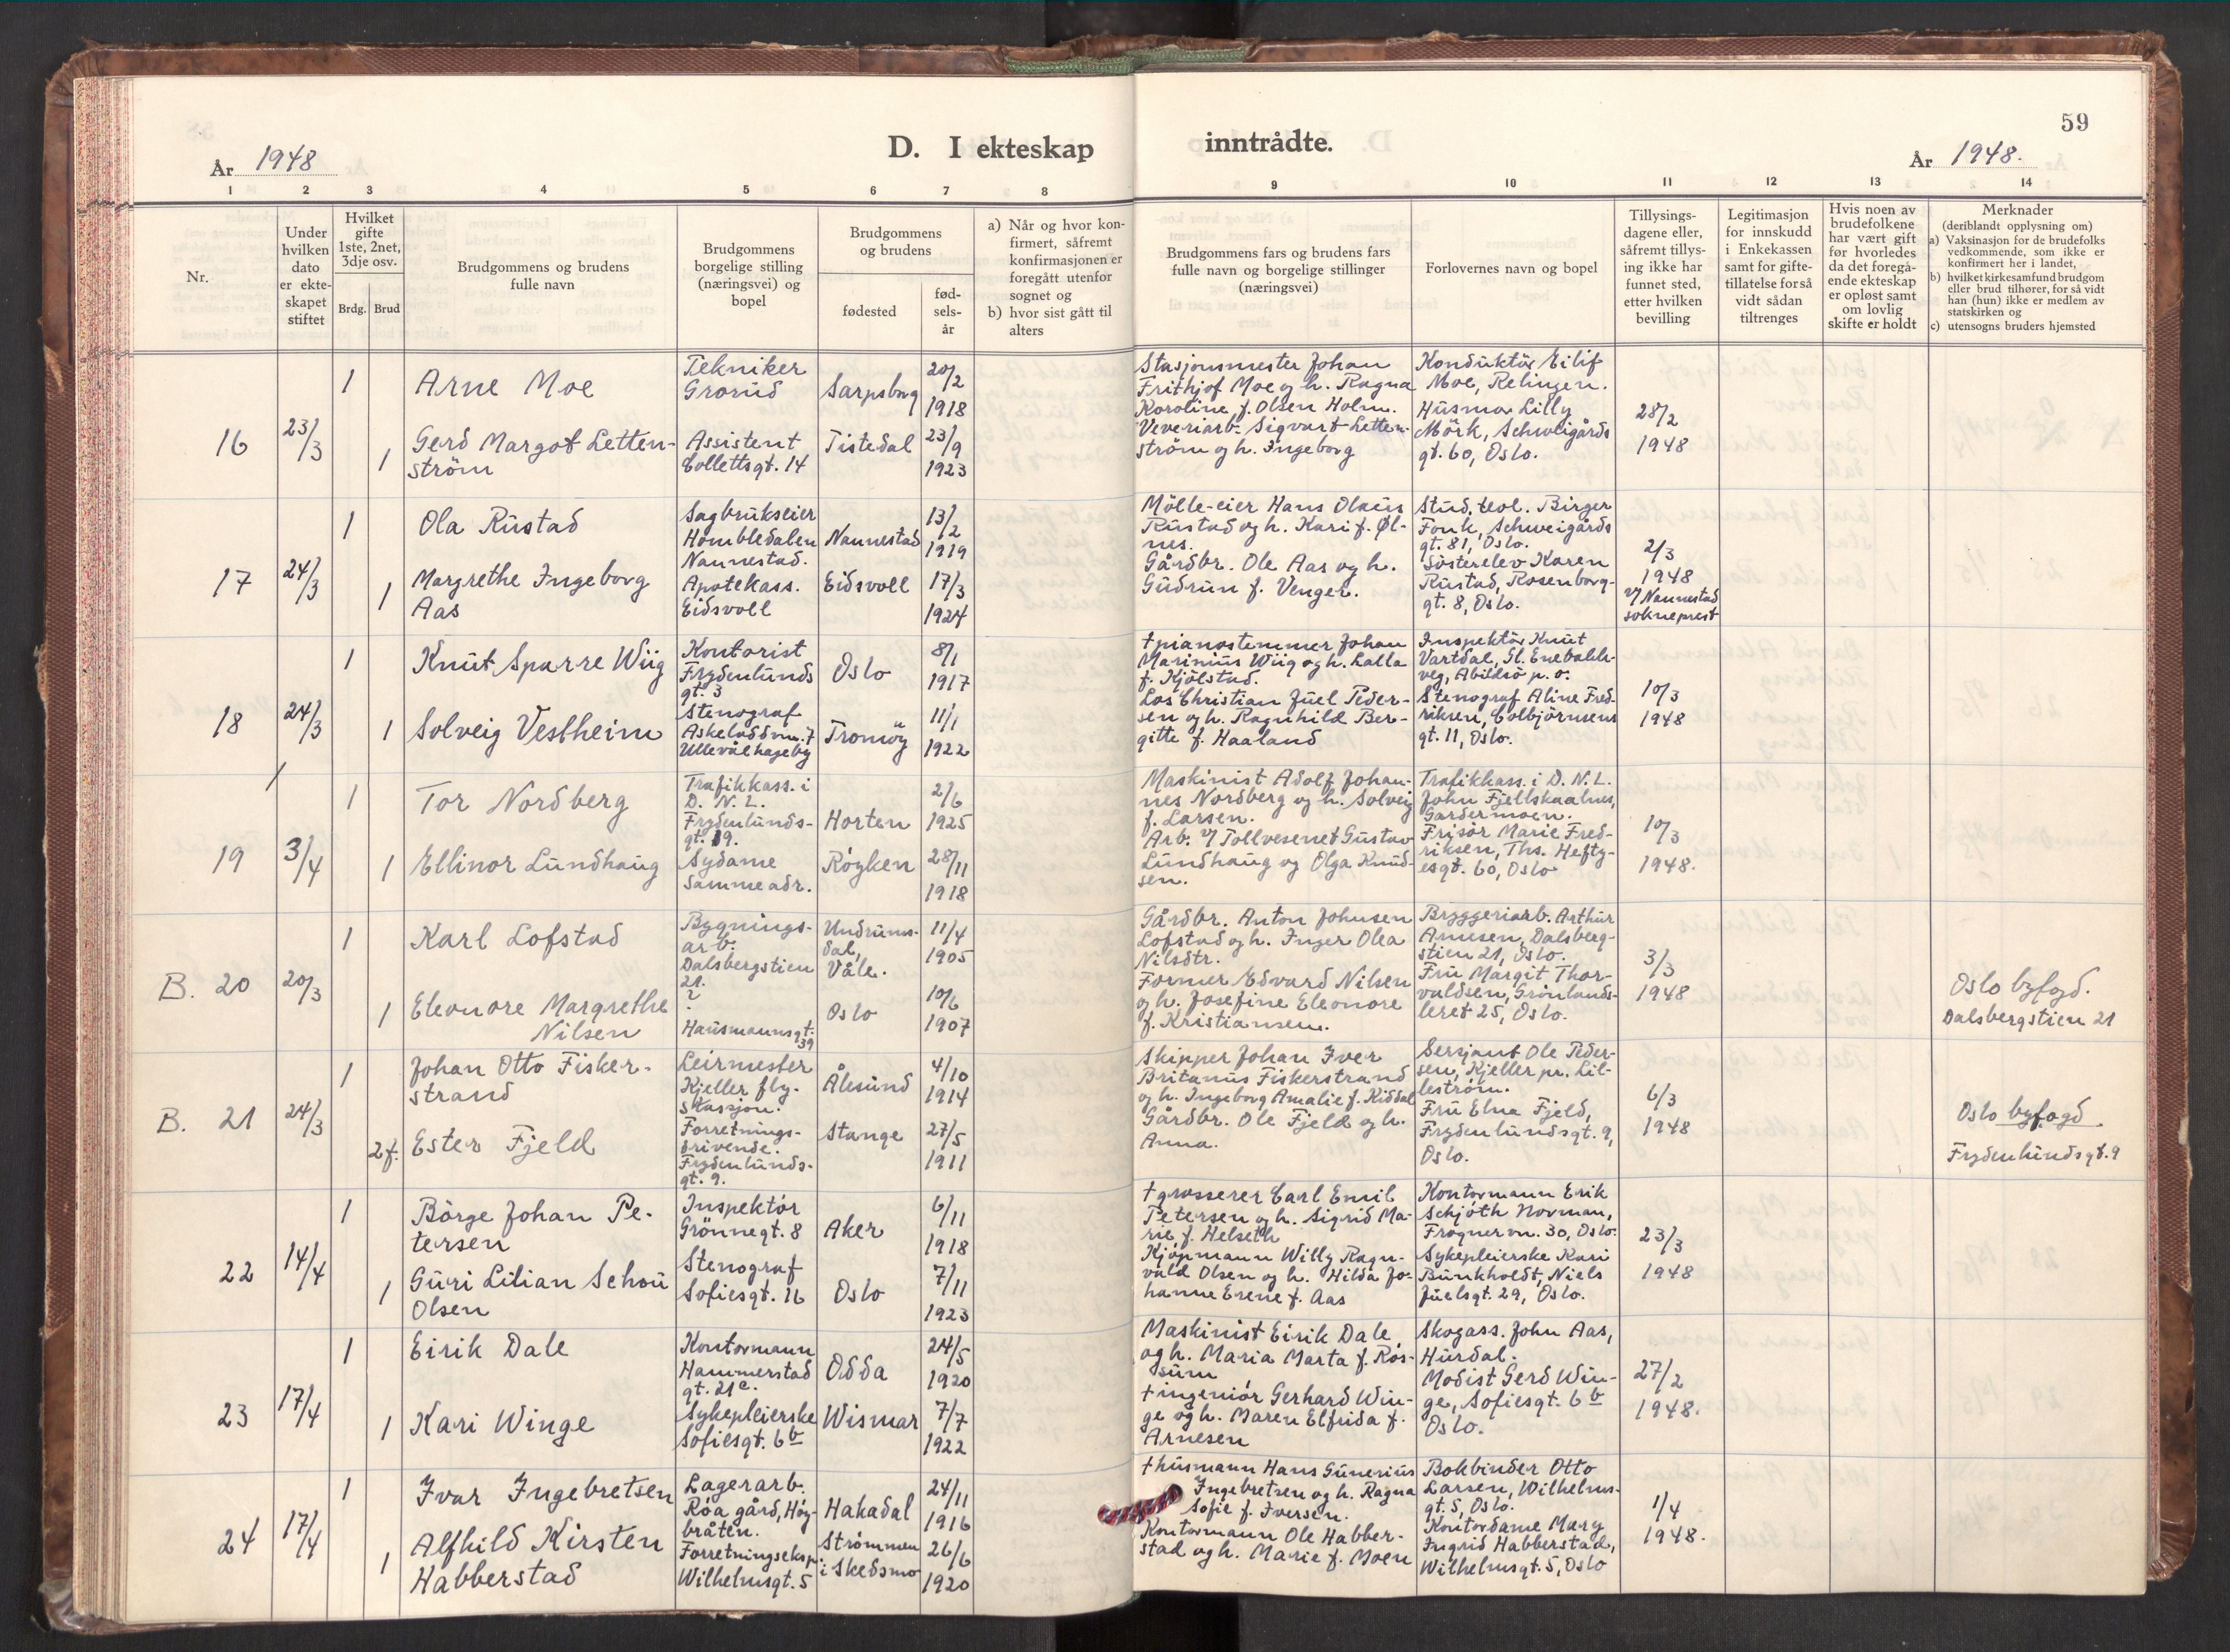 59
D. I ekteskap inntrådte.
År 1948
År 1948.
1 2 3 4 5 6 7 8 9 10 11 12 13 14
Nr.
Under hvilken dato er ekte-skapet stiftet
Hvilket gifte 1ste, 2net, 3dje osv.
Brdg. Brud
Brudgommens og brudens fulle navn
Brudgommens borgelige stilling (næringsvei) og bopel
Brudgommens og brudens
fødested
fød-sels-år
a) Når og hvor kon-firmert, såfremt konfirmasjonen er foregått utenfor sognet og
b) hvor sist gått til alters
Brudgommens fars og brudens fars fulle navn og borgelige stillinger (næringsvei)
Forlovernes navn og bopel
Tillysings-dagene eller, såfremt tillys-ing ikke har funnet sted, etter hvilken bevilling
Legitimasjon for innskudd i Enkekassen samt for gifte-tillatelse forså vidt sådan tiltrenges
Hvis noen av brudefolkene har vært gift før hvorledes da det foregå-ende ekteskap er opløst samt om lovlig skifte er holdt
Merknader
(deriblandt opplysning om)
a) Vaksinasjon for de brudefolks vedkommende, som ikke er konfirmert her i landet,
b) hvilket kirkesamfund brudgom eller brud tilhører, for så vidt han (hun) ikke er medlem av statskirken og
c) utensogns bruders hjemsted
16
23/3
1
Arne Moe
Tekniker
Grorud
Sarpsborg
20/2
1918
1
Gerd Margot Letten-
ström
Assistent
Collettsgt. 14
Tistedal
23/9
1923
Stasjonsmester Johan
Frithjof Moe og h. Ragna
Karoline f. Olsen Holm.
Veveriarb. Sigvart Letten-
ström og h. Ingeborg
Konduktör Eilif
Moe, Relingen.
Husmor Lilly
Mörk, Schweigårds
gt. 60, Oslo.
28/2
1948
17
24/3
1
Ola Rustad
Sagbrukseier
Hombledalen
Nannestad.
Nannestad
13/2
1919
1
Margrethe Ingeborg
Aas
Apotekass.
Eidsvoll
Eidsvoll
17/3
1924
Mölle-eier Hans Olaus
Rustad og h. Kari f. Øl-
nes.
Gårdbr. Ole Aas og h.
Gudrun f. Venger.
Stud. teol. Birger
Fonk, Schweigårds
gt. 81, Oslo.
Sösterelev Karen
Rustad, Rosenborg-
gt. 8, Oslo.
2/3
1948
v/ Nannestad
sokneprest
18
24/3
1
Knut Sparre Wiig
Kontorist
Frydenlunds
gt. 3
Oslo
8/1
1917
1
Solveig Vestheim
Stenograf
Askeladdvn. 7
Ullevål hageby
Tromöy
11/1
1922
† pianostemmer Johan
Marinus Wiig og h. Lalla
f. Kjölstad.
Los Christian Juel Peder-
sen og h. Ragnhild Ber-
gitte f. Haaland
Inspektör Knut
Vartdal, Gl. Enebakk-
veg, Abildsö p. o.
Stenograf Aline Fred-
riksen, Colbjörnsens
gt. 11, Oslo.
10/3
1948
19
3/4
1
Tor Nordberg
Trafikkass. i
D. N. L.
Frydenlunds-
gt. 19.
Horten
2/6
1925
1
Ellinor Lundhaug
Sydame
Samme adr.
Röyken
28/11
1918
Maskinist Adolf Johan-
nes Nordberg og h. Solveig
f. Larsen.
Arb. v/ Tollvesenet Gustav
Lundhaug og Olga Knud-
sen.
Trafikkass. i D. N. L.
John Fjellskaalnes,
Gardermoen.
Frisör Marie Fred-
riksen, Ths. Hefty-
esgt. 60, Oslo
10/3
1948.
B. 20
20/3
1
Karl Lofstad
Bygnings-
arb.
Dalsbergstien
21.
Undrums-
dal,
Våle.
11/4
1905
1
Eleonore Margrethe
Nilsen
?
Hausmannsgt.
39
Oslo
10/6
1907
Gårdbr. Anton Johnsen
Lofstad og h. Inger Olea
Nilsdtr.
Former Edvard Nilsen
og h. Josefine Eleonore
f. Kristiansen.
Bryggeriarb. Arthur
Arnesen, Dalsberg-
stien 21, Oslo.
Fru Margit Thor-
valdsen, Grönlands-
leret 25, Oslo.
3/3
1948
Oslo byfogd.
Dalsbergstien 21
B. 21
24/3
1
Johan Otto Fisker-
strand
Leirmester
Kjeller fly-
stasjon.
Ålesund
4/10
1914
2 f.
Ester Fjeld
Forretnings-
drivende.
Frydenlunds-
gt. 9.
Stange
27/5
1911
Skipper Johan Iver
Britanus Fiskerstrand
og h. Ingeborg Amalie f. Kiddal
Gårdbr. Ole Fjeld og h.
Anna.
Sersjant Ole Peder-
sen, Kjeller pr. Lil-
leström.
Fru Elna Fjeld,
Frydenlundsgt. 9,
Oslo.
6/3
1948
Oslo byfogd
Frydenlundsgt. 9
22
14/4
1
Börge Johan Pe-
tersen
Inspektör
Grönnegt. 8
Aker
6/11
1918
1
Guri Lilian Schou
Olsen
Stenograf
Sofiesgt. 16
Oslo
7/11
1923
† grosserer Carl Emil
Petersen og h. Sigrid Ma-
rie, f. Helseth
Kjöpmann Willy Ragn-
vald Olsen og h. Hilda Jo-
hanne Erene f. Aas
Kontormann Erik
Schjöth Norman,
Frognervn. 30, Oslo.
Sykepleierske Kari
Bunkholdt, Niels
Juelsgt. 29, Oslo.
23/3
1948
23
17/4
1
Eirik Dale
Kontormann
Hammerstad
gt. 21c.
Odda
24/5
1920
1
Kari Winge
Sykepleierske
Sofiesgt. 6b
Wismar
7/7
1922
Maskinist Eirik Dale
og h. Maria Marta f. Rös-
sum
† ingeniör Gerhard Win-
ge og h. Maren Elfrida f.
Arnesen
Skogass. John Aas,
Hurdal.
Modist Gerd Win-
ge, Sofiesgt. 6b
Oslo.
27/2
1948.
24
17/4
1
Ivar Ingebretsen
Lagerarb.
Röa gård, Höy-
bråten.
Hakadal
24/11
1916
1
Alfhild Kirsten
Habberstad
Forretningseksp.
Wilhelmsgt. 5
Strömmen
i Skedsmo
26/6
1920
† husmann Hans Gunerius
Ingebretsen og h. Ragna
Sofie f. Iversen.
Kontormann Ole Habber-
stad og h. Marie f. Moen
Bokbinder Otto
Larsen, Wilhelms-
gt. 5, Oslo.
Kontordame Mary
Ingrid Habberstad,
Wilhelmsgt. 5, Oslo
1/4
1948.